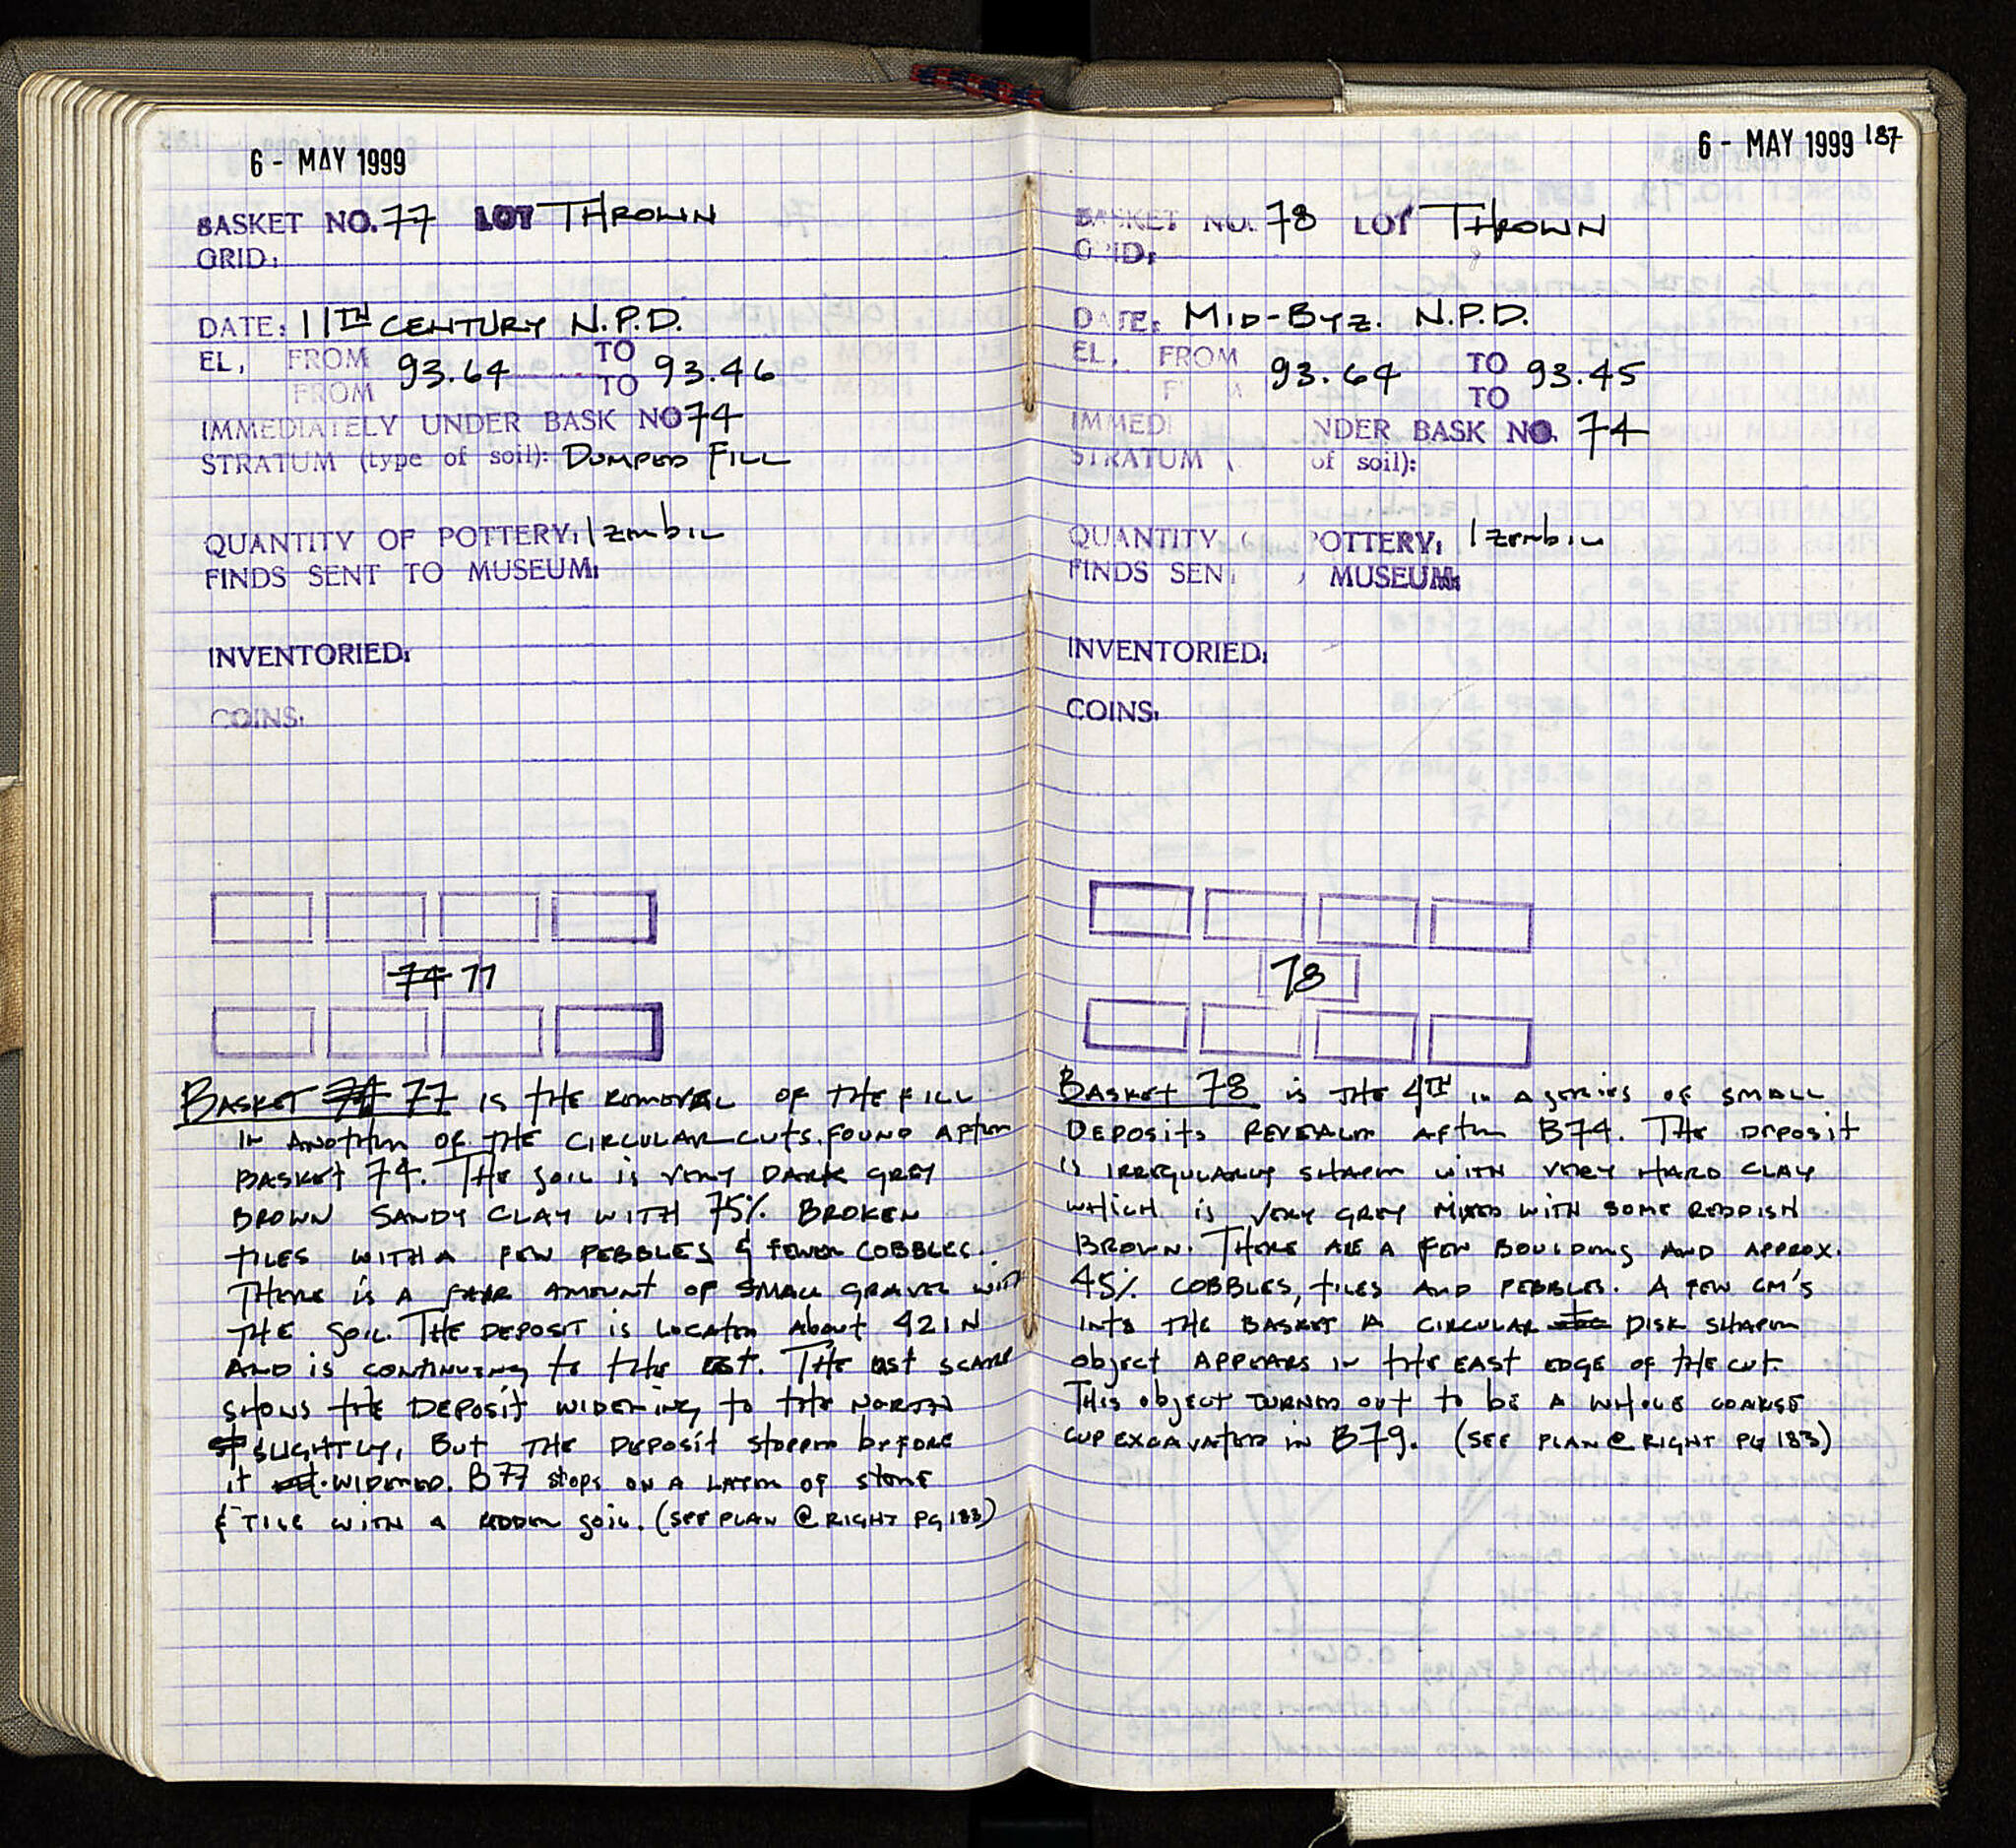 6 - MAY 1999
BASKET NO. 77 LOT THROWN
GRID:
DATE: 11TH CENTURY N.P.D.
EL, FROM 93.64 TO 93.46
FROM TO
IMMEDIATELY UNDER BASK NO 74
STRATUM (type of soil): DUMPED FILL
QUANTITY OF POTTERY: 1 zembil
FINDS SENT TO MUSEUM:
INVENTORIED:
COINS:
74 77
BASKET 74 77 IS THE REMOVAL OF THE FILL
IN ANOTHER OF THE CIRCULAR CUTS FOUND AFTER
BASKET 74. THE SOIL IS VERY DARK GREY
BROWN SANDY CLAY WITH 75% BROKEN
TILES WITH A FEW PEBBLES & FEWER COBBLES.
THERE IS A FAIR AMOUNT OF SMALL GRAVEL WITH
THE SOIL. THE DEPOSIT IS LOCATED ABOUT 421N
AND IS CONTINUING TO THE EST. THE EST SCARP
SHOWS THE DEPOSIT WIDENING TO THE NORTH
SLIGHTLY, BUT THE DEPOSIT STOPPED BEFORE
IT WIDENED. B77 STOPS ON A LAYER OF STONE
& TILE WITH A REDDER SOIL. (SEE PLAN @ RIGHT PG 183)
6 - MAY 1999 187
BASKET NO. 78 LOT THROWN
GRID:
DATE: MID-BYZ. N.P.D.
EL, FROM 93.64 TO 93.45
F M TO
IMMEDI NDER BASK NO. 74
STRATUM ( of soil):
QUANTITY OTTERY: 1 zembil
FINDS SEN MUSEUM:
INVENTORIED:
COINS:
78
BASKET 78 IS THE 4TH IN A SERIES OF SMALL
DEPOSITS REVEALED AFTER B74. THE DEPOSIT
IS IRREGULARLY SHAPED WITH VERY HARD CLAY
WHICH IS VERY GREY MIXED WITH SOME REDDISH
BROWN. THERE ARE A FEW BOULDERS AND APPROX.
45% COBBLES, TILES AND PEBBLES. A FEW CM'S
INTO THE BASKET A CIRCULAR DISK SHAPED
OBJECT APPEARS IN THE EAST EDGE OF THE CUT.
THIS OBJECT TURNED OUT TO BE A WHOLE COARSE
CUP EXCAVATED IN B79. (SEE PLAN @ RIGHT PG 183)